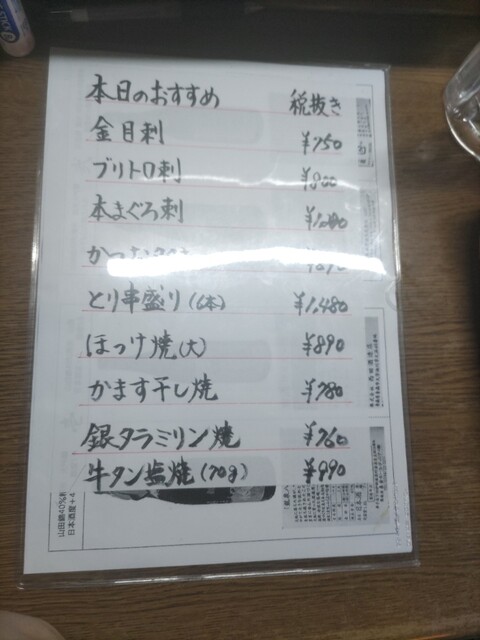 本日のおすすめ 税抜き
金目刺 ¥750
ブリトロ刺 ¥800
本まぐろ刺
とり串盛り(6本) ¥1,480
ほっけ焼(大) ¥890
かます干し焼 ¥780
銀タラミリン焼 ¥760
牛タン塩焼(70g) ¥990
日本酒度+4